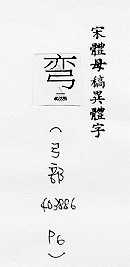 宋體母稿異體字
弯
（弓部
403886
P6）